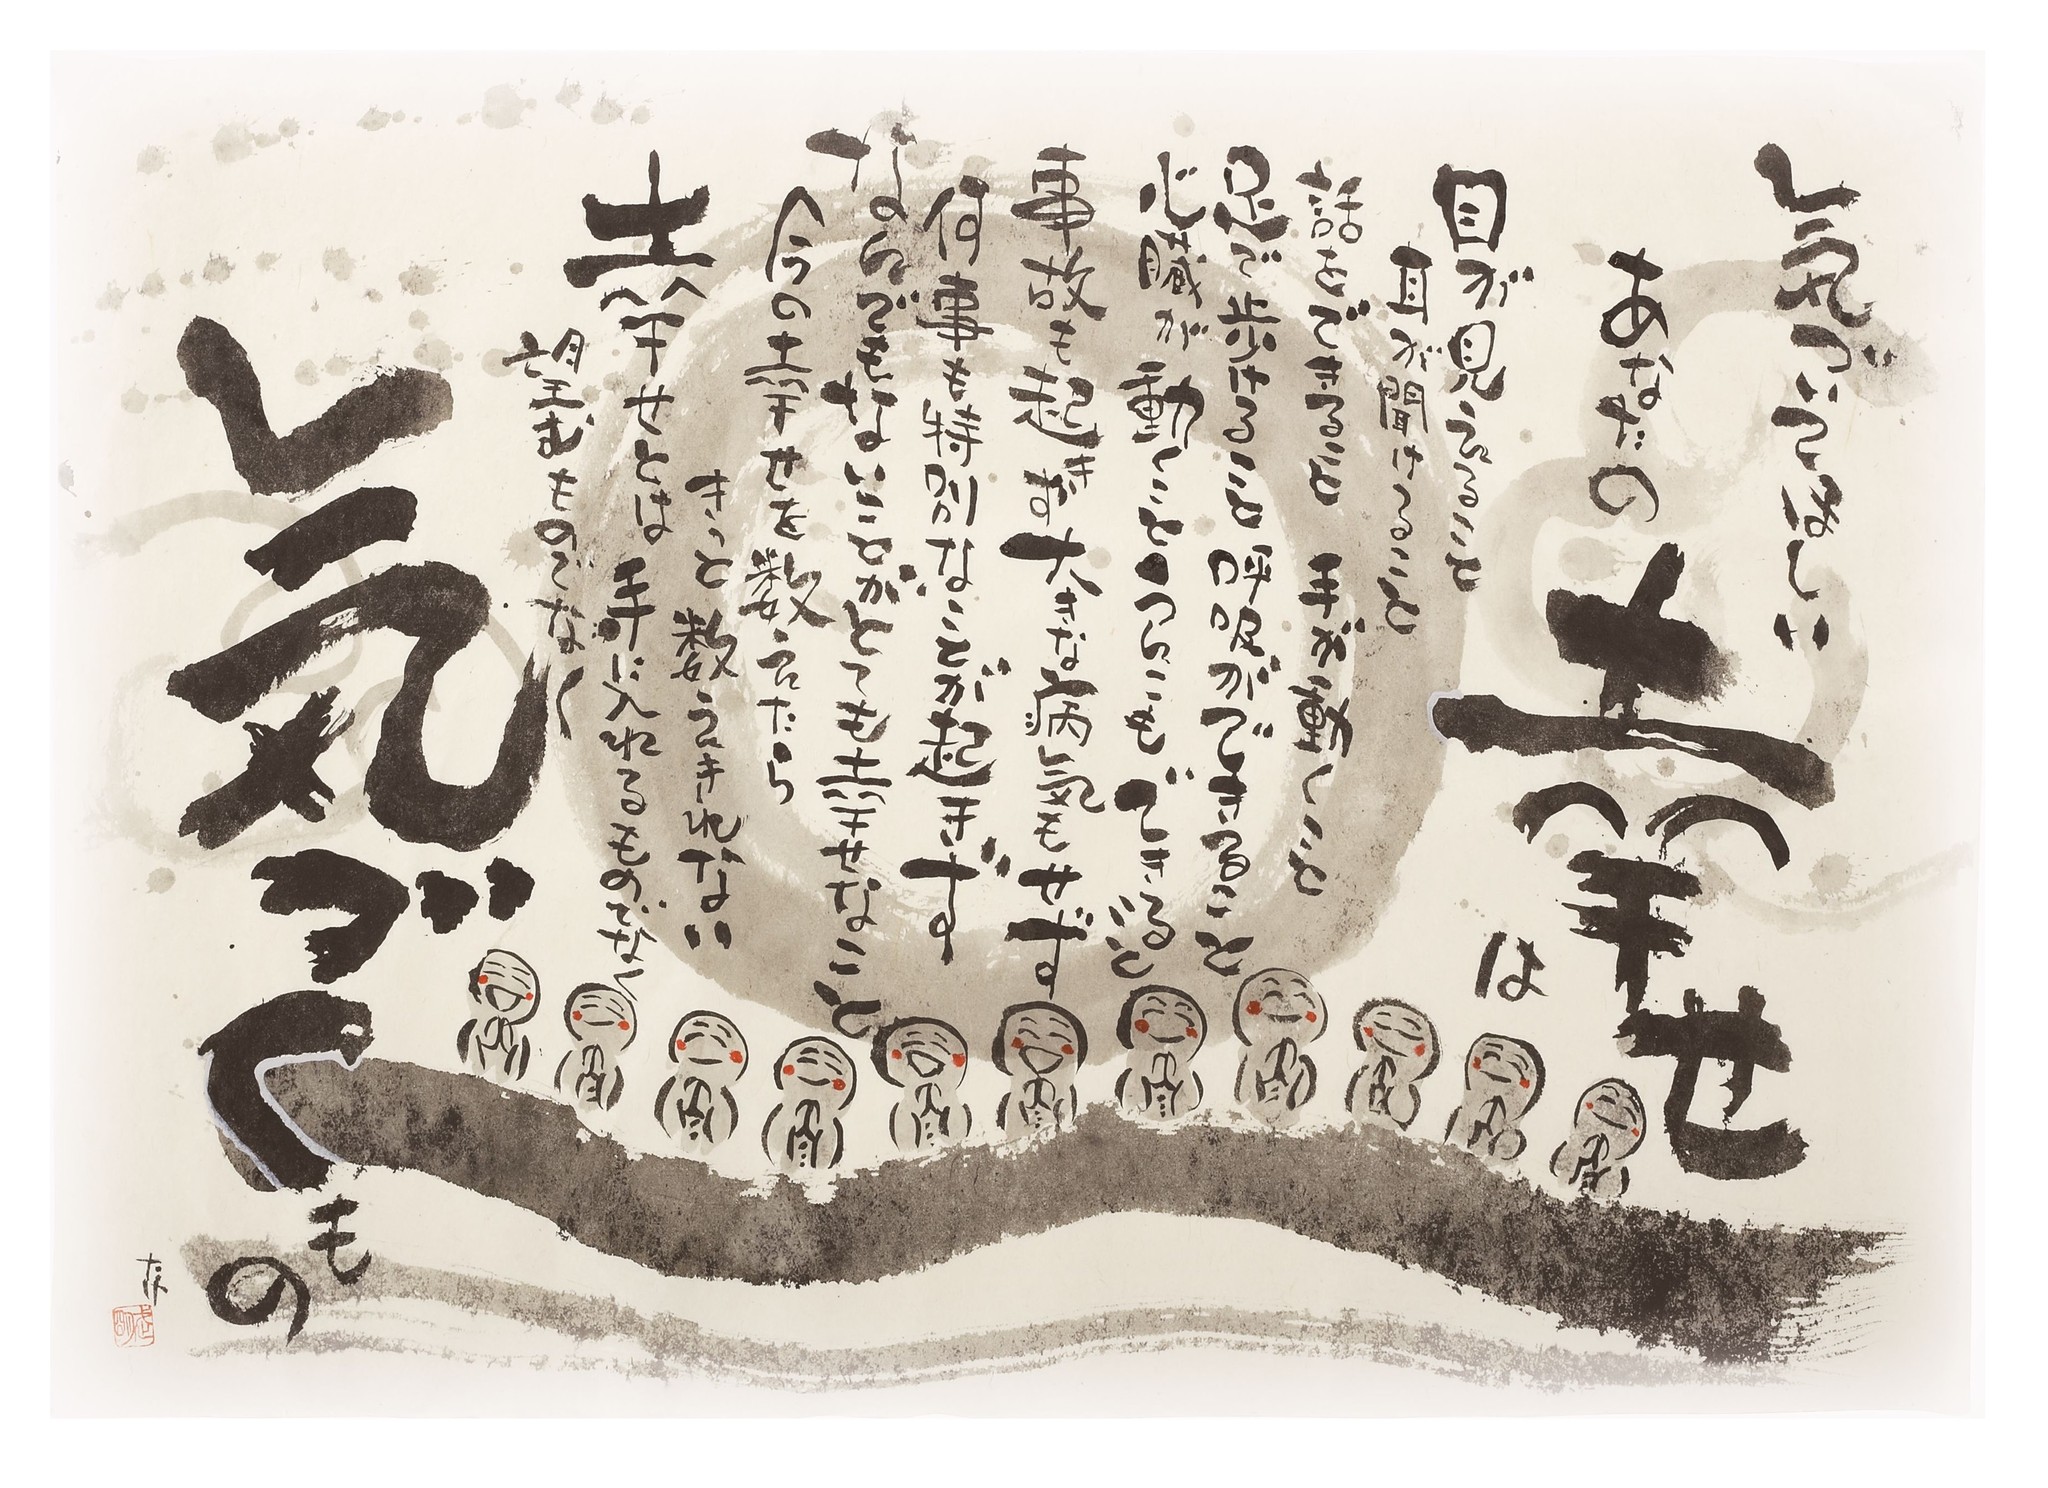 気づいてほしい
あなたの
幸せ
は
目が見えること
耳が聞けること
話をできること 手が動くこと
足で歩けること 呼吸ができること
心臓が動くこと うんこもできること
事故も起きず大きな病気もせず
何事も特別なことが起きず
なんでもないことがとても幸せなこと
今の幸せを数えたら
きっと数えきれない
幸せとは手に入れるものでなく
望むものでなく
気づく
もの